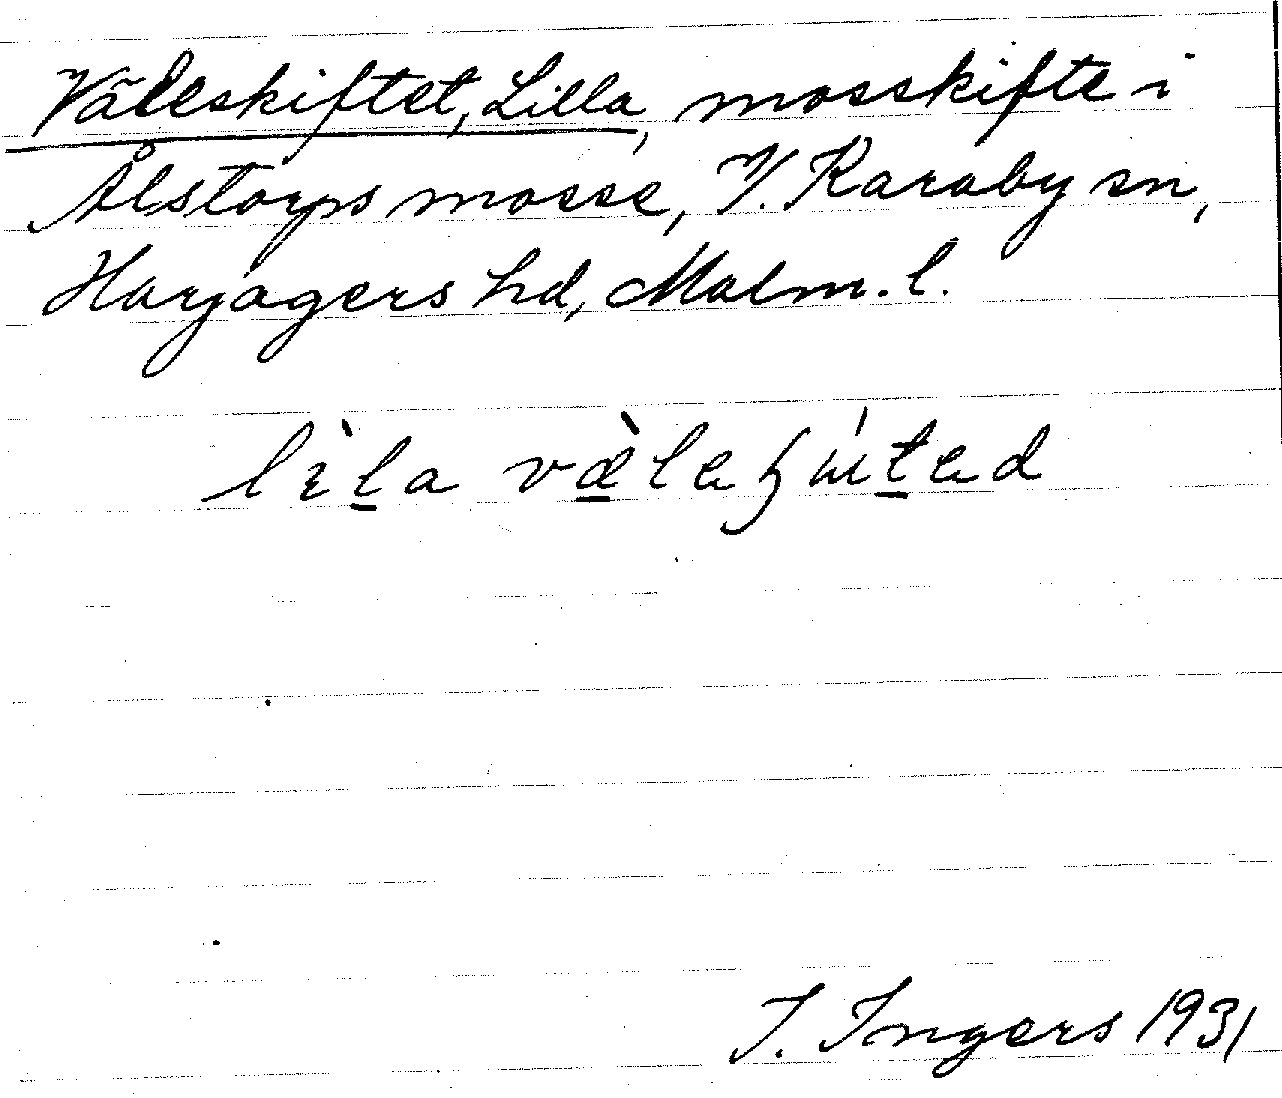 Väleskiftet, Lilla, mosskifte i
Ålstorps mosse, V. Karaby sn,
Harjagers hd, Malm. l.
I. Ingers 1931